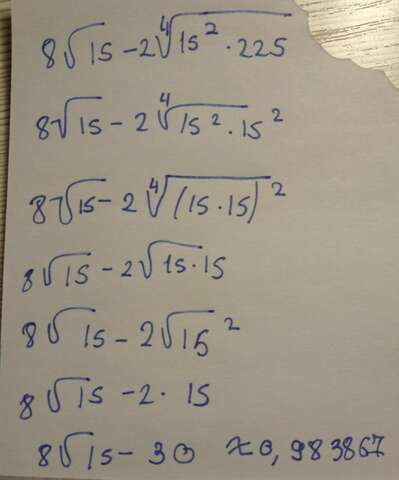 8√15 - 2∜15² · 225
8√15 - 2∜15² · 15²
8√15 - 2∜(15 · 15)²
8√15 - 2√15 · 15
8√15 - 2√15²
8√15 - 2 · 15
8√15 - 30 ≈ 0,983867